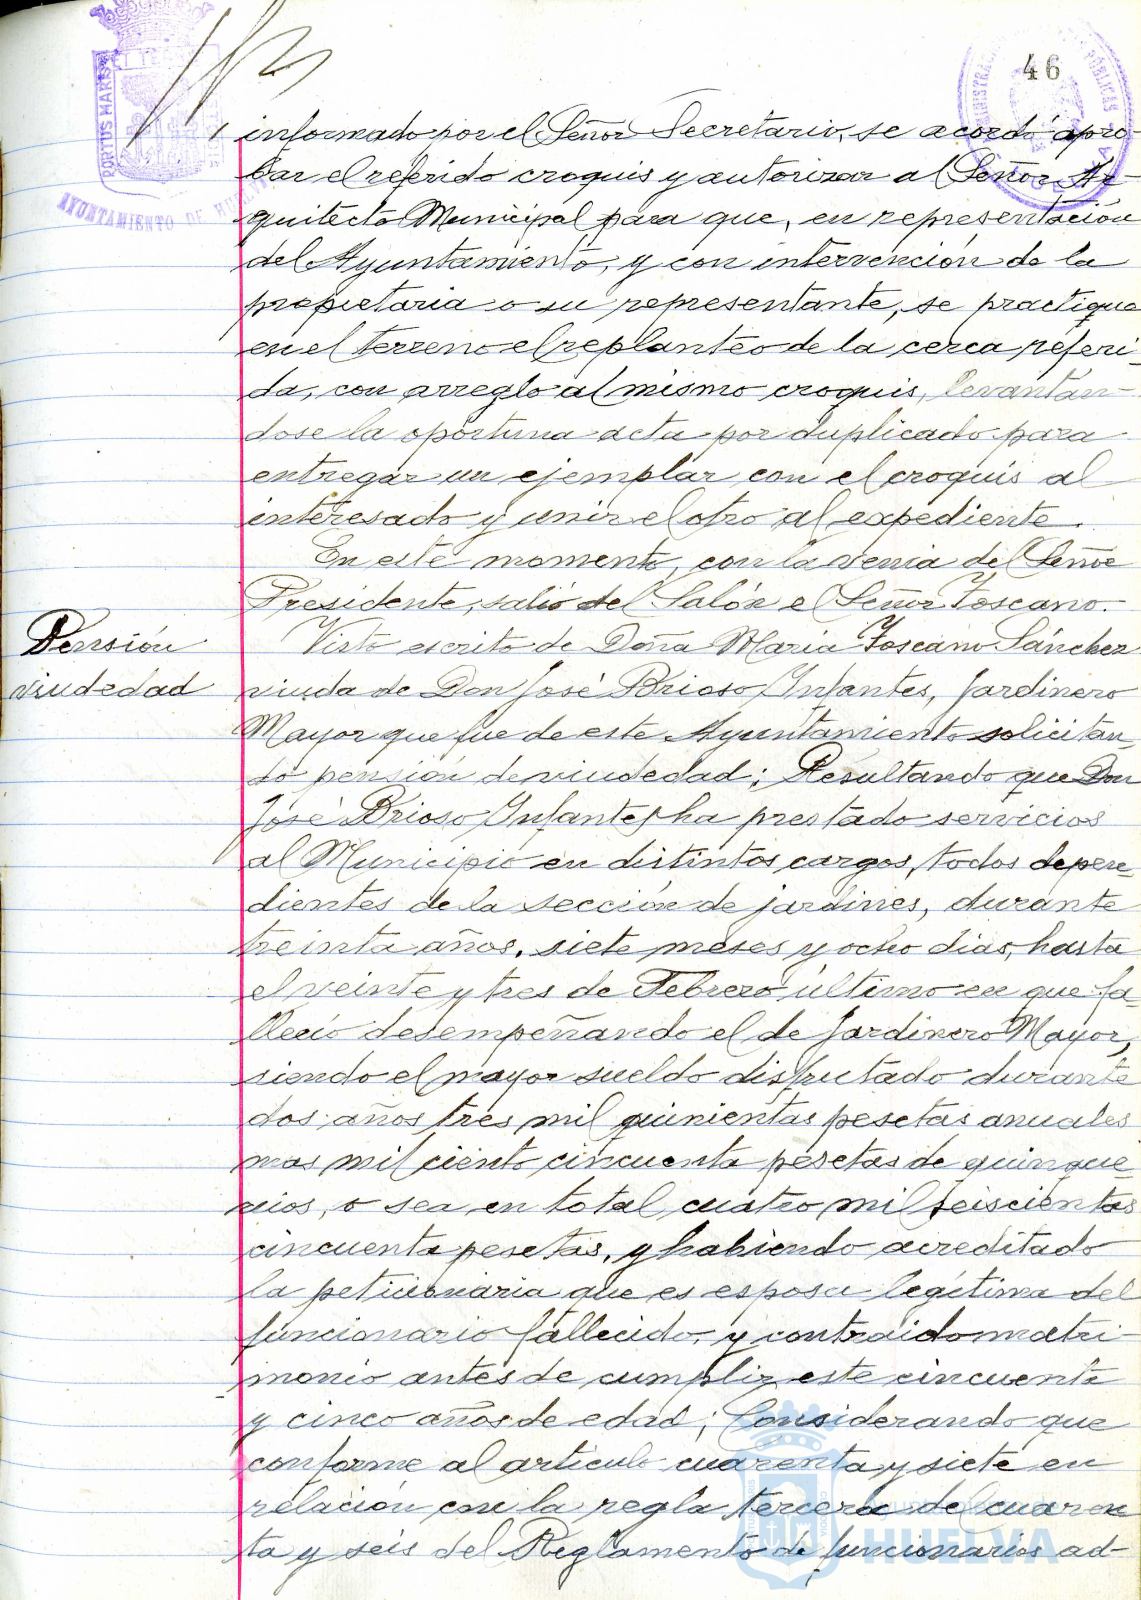 46
PORTUS MARIS ET TERRÆ
AYUNTAMIENTO DE HUELVA
informado por el Señor Secretario, se acordó apro-
bar el referido croquis y autorizar al Señor Ar-
quitecto Municipal para que, en representación
del Ayuntamiento, y con intervención de la
propietaria o su representante, se practique
en el terreno el replanteo de la cerca referi-
da, con arreglo al mismo croquis, levantan-
dose la oportuna acta por duplicado para
entregar un ejemplar con el croquis al
interesado y unir el otro al expediente.
En este momento, con la venia del Señor
Presidente, salió del Salón el Señor Toscano.
Pensión
viudedad
Visto escrito de Doña María Toscano Sánchez
viuda de Don José Brioso Infantes, Jardinero
Mayor que fue de este Ayuntamiento solicitan-
do pensión de viudedad; Resultando que Don
José Brioso Infantes ha prestado servicios
al Municipio en distintos cargos, todos depen-
dientes de la sección de jardines, durante
treinta años, siete meses y ocho dias, hasta
el veinte y tres de Febrero último en que fa-
lleció desempeñando el de Jardinero Mayor,
siendo el mayor sueldo disfrutado durante
dos años tres mil quinientas pesetas anuales
mas mil ciento cincuenta pesetas de quinque-
nios, o sea en total cuatro mil seiscientas
cincuenta pesetas, y habiendo acreditado
la peticionaria que es esposa legítima del
funcionario fallecido, y contraido matri-
monio antes de cumplir este cincuenta
y cinco años de edad; Considerando que
conforme al artículo cuarenta y siete en
relación con la regla tercera del cuaren-
ta y seis del Reglamento de funcionarios ad-
HUELVA